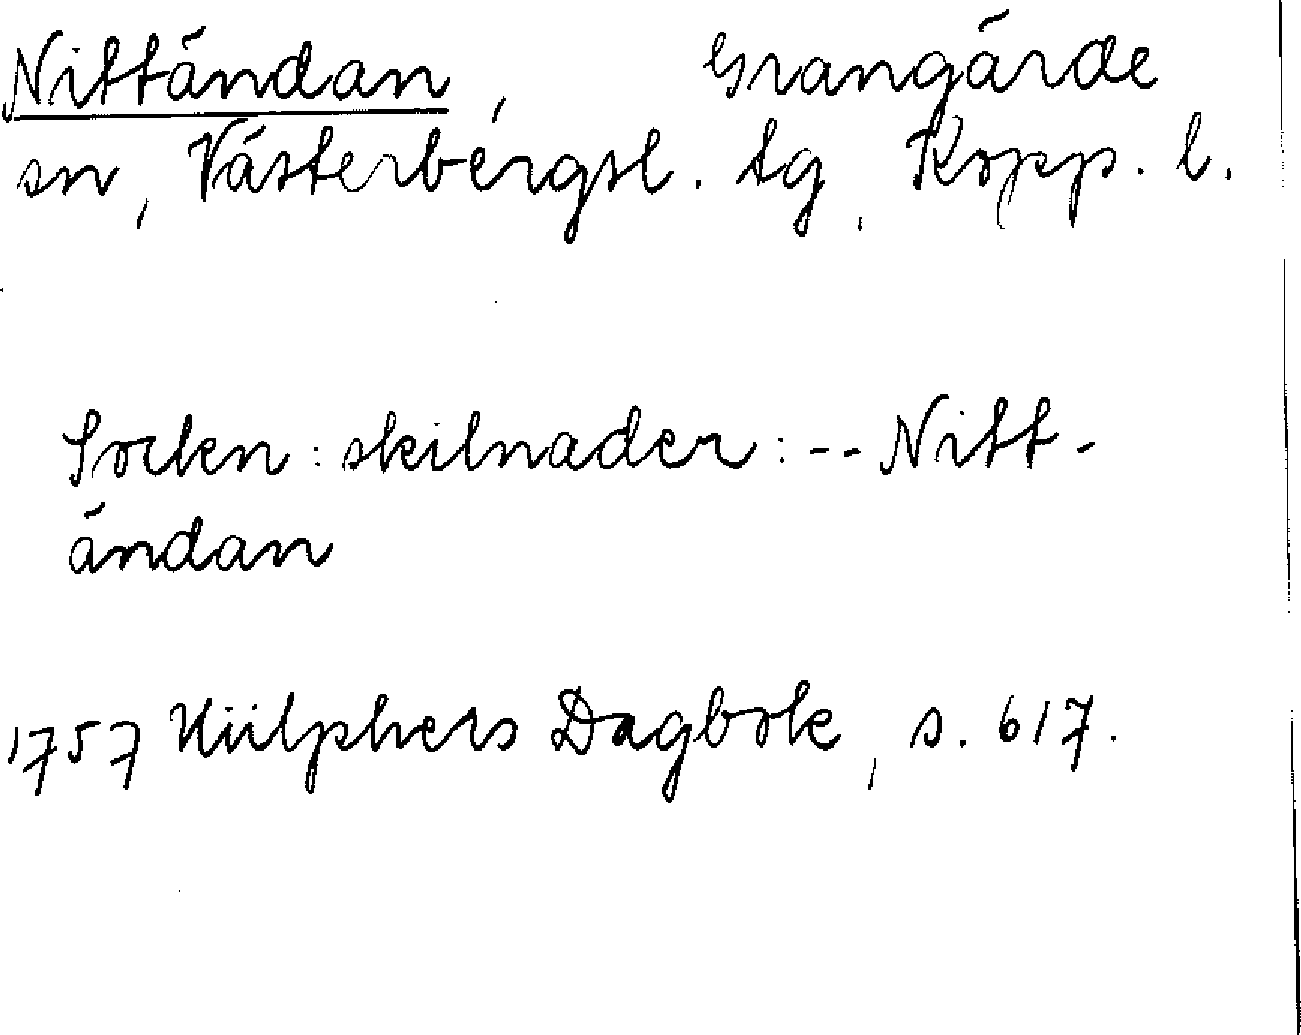 Nittändan, Grangärde
sn, Västerbergsl. tg, Kopp. l.
Socken: skilnader: -- Nitt-
ändan
1757 Hülphers Dagbok, s. 617.